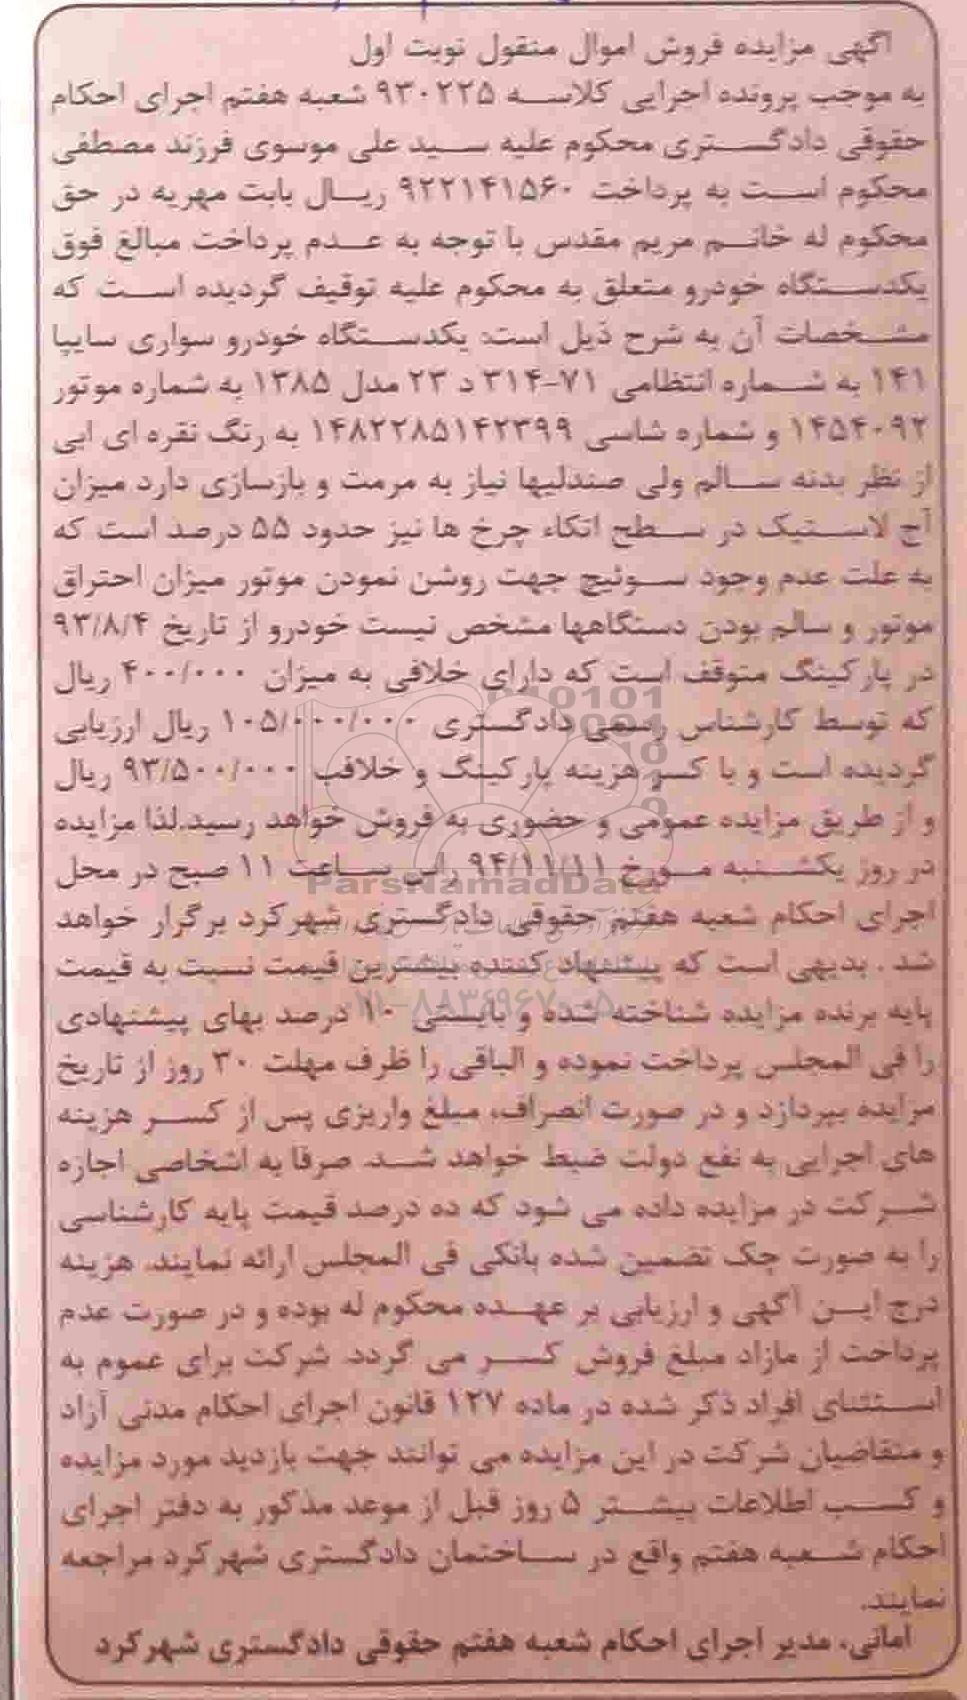 آگهی مزایده فروش اموال منقول نوبت اول
به موجب پرونده اجرایی کلاسه ۹۳۰۲۲۵ شعبه هفتم اجرای احکام
حقوقی دادگستری محکوم علیه سید علی موسوی فرزند مصطفی
محکوم است به پرداخت ۹۲۲۱۴۱۵۶۰ ریال بابت مهریه در حق
محکوم له خانم مریم مقدس با توجه به عدم پرداخت مبالغ فوق
یکدستگاه خودرو متعلق به محکوم علیه توقیف گردیده است که
مشخصات آن به شرح ذیل است: یکدستگاه خودرو سواری سایپا
۱۴۱ به شماره انتظامی ۷۱-۳۱۴ د ۲۳ مدل ۱۳۸۵ به شماره موتور
۱۴۵۴۰۹۲ و شماره شاسی ۱۴۸۲۲۸۵۱۴۲۳۹۹ به رنگ نقره ای ابی
از نظر بدنه سالم ولی صندلیها نیاز به مرمت و بازسازی دارد میزان
آج لاستیک در سطح اتکاء چرخ ها نیز حدود ۵۵ درصد است که
به علت عدم وجود سوئیچ جهت روشن نمودن موتور میزان احتراق
موتور و سالم بودن دستگاهها مشخص نیست خودرو از تاریخ ۹۳/۸/۴
در پارکینگ متوقف است که دارای خلافی به میزان ۴۰۰/۰۰۰ ریال
که توسط کارشناس رسمی دادگستری ۱۰۵/۰۰۰/۰۰۰ ریال ارزیابی
گردیده است و با کسر هزینه پارکینگ و خلافی ۹۳/۵۰۰/۰۰۰ ریال
و از طریق مزایده عمومی و حضوری به فروش خواهد رسید.لذا مزایده
در روز یکشنبه مورخ ۹۴/۱۱/۱۱ راس ساعت ۱۱ صبح در محل
ParsNamadData
اجرای احکام شعبه هفتم حقوقی دادگستری شهرکرد برگزار خواهد
شد . بدیهی است که پیشنهاد کننده بیشترین قیمت نسبت به قیمت
۰۲۱-۸۸۳۴۹۶۷۰-۵
پایه برنده مزایده شناخته شده و بایستی ۱۰ درصد بهای پیشنهادی
را فی المجلس پرداخت نموده و الباقی را ظرف مهلت ۳۰ روز از تاریخ
مزایده بپردازد و در صورت انصراف، مبلغ واریزی پس از کسر هزینه
های اجرایی به نفع دولت ضبط خواهد شد. صرفا به اشخاصی اجازه
شرکت در مزایده داده می شود که ده درصد قیمت پایه کارشناسی
را به صورت چک تضمین شده بانکی فی المجلس ارائه نمایند. هزینه
درج این آگهی و ارزیابی بر عهده محکوم له بوده و در صورت عدم
پرداخت از مازاد مبلغ فروش کسر می گردد. شرکت برای عموم به
استثنای افراد ذکر شده در ماده ۱۲۷ قانون اجرای احکام مدنی آزاد
و متقاضیان شرکت در این مزایده می توانند جهت بازدید مورد مزایده
و کسب اطلاعات بیشتر ۵ روز قبل از موعد مذکور به دفتر اجرای
احکام شعبه هفتم واقع در ساختمان دادگستری شهرکرد مراجعه
نمایند.
امانی. مدیر اجرای احکام شعبه هفتم حقوقی دادگستری شهرکرد